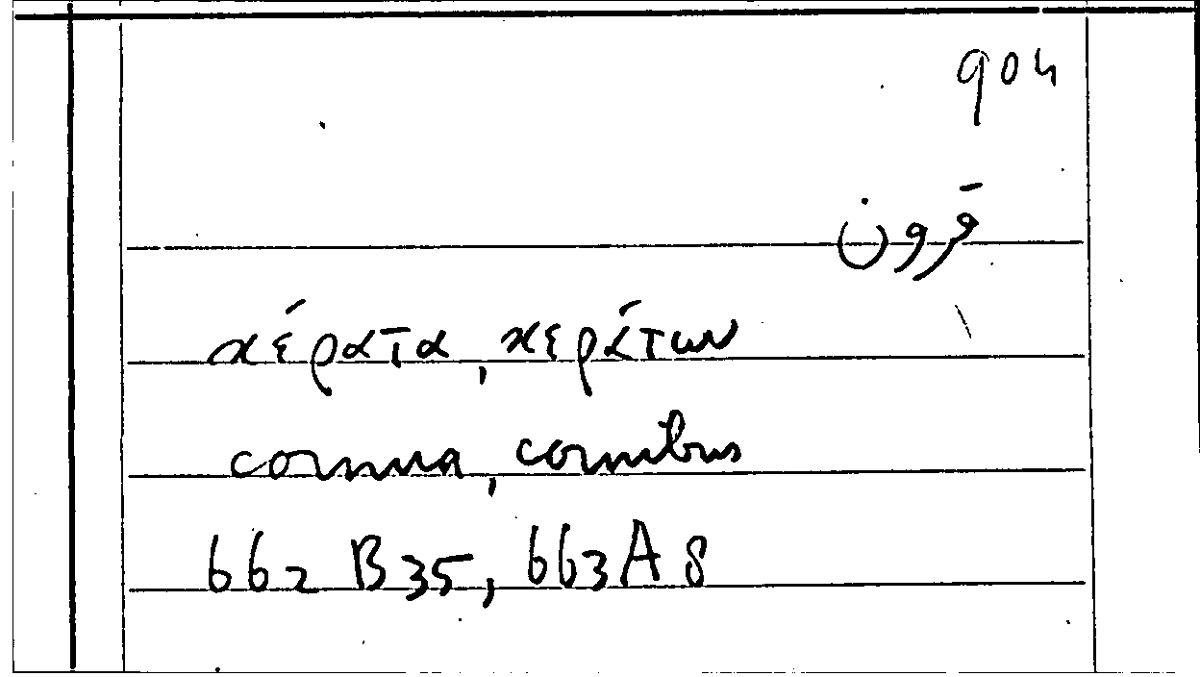 904
قَرون
κέρατα, κεράτων
cornua, cornibus
662 B 35, 663 A 8